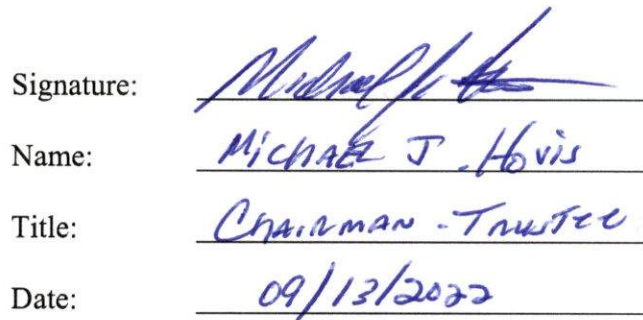 Signature: Michael J. Hovis
Name: Michael J. Hovis
Title: Chairman - Trustee
Date: 09/13/2022